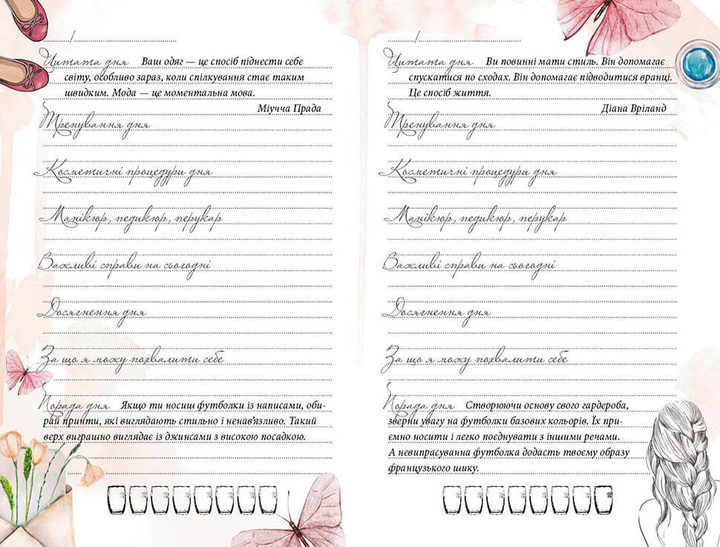 Цитата дня Ваш одяг — це спосіб піднести себе
світу, особливо зараз, коли спілкування стає таким
швидким. Мода — це моментальна мова.
Міучча Прада
Тренування дня
Косметичні процедури дня
Манікюр, педикюр, перукар
Важливі справи на сьогодні
Досягнення дня
За що я можу похвалити себе
Порада дня Якщо ти носиш футболки із написами, оби-
рай принти, які виглядають стильно і ненав'язливо. Такий
верх виграшно виглядає із джинсами з високою посадкою.
Цитата дня Ви повинні мати стиль. Він допомагає
спускатися по сходах. Він допомагає підводитися вранці.
Це спосіб життя.
Діана Вріланд
Тренування дня
Косметичні процедури дня
Манікюр, педикюр, перукар
Важливі справи на сьогодні
Досягнення дня
За що я можу похвалити себе
Порада дня Створюючи основу свого гардероба,
зверни увагу на футболки базових кольорів. Їх при-
ємно носити і легко поєднувати з іншими речами.
А невипрасувана футболка додасть твоєму образу
французького шику.